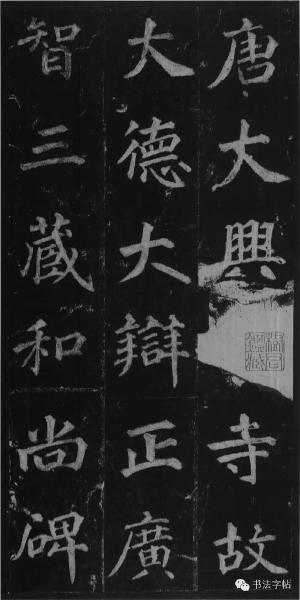 唐大興寺故
大德大辯正廣
智三藏和尚碑
書法字帖